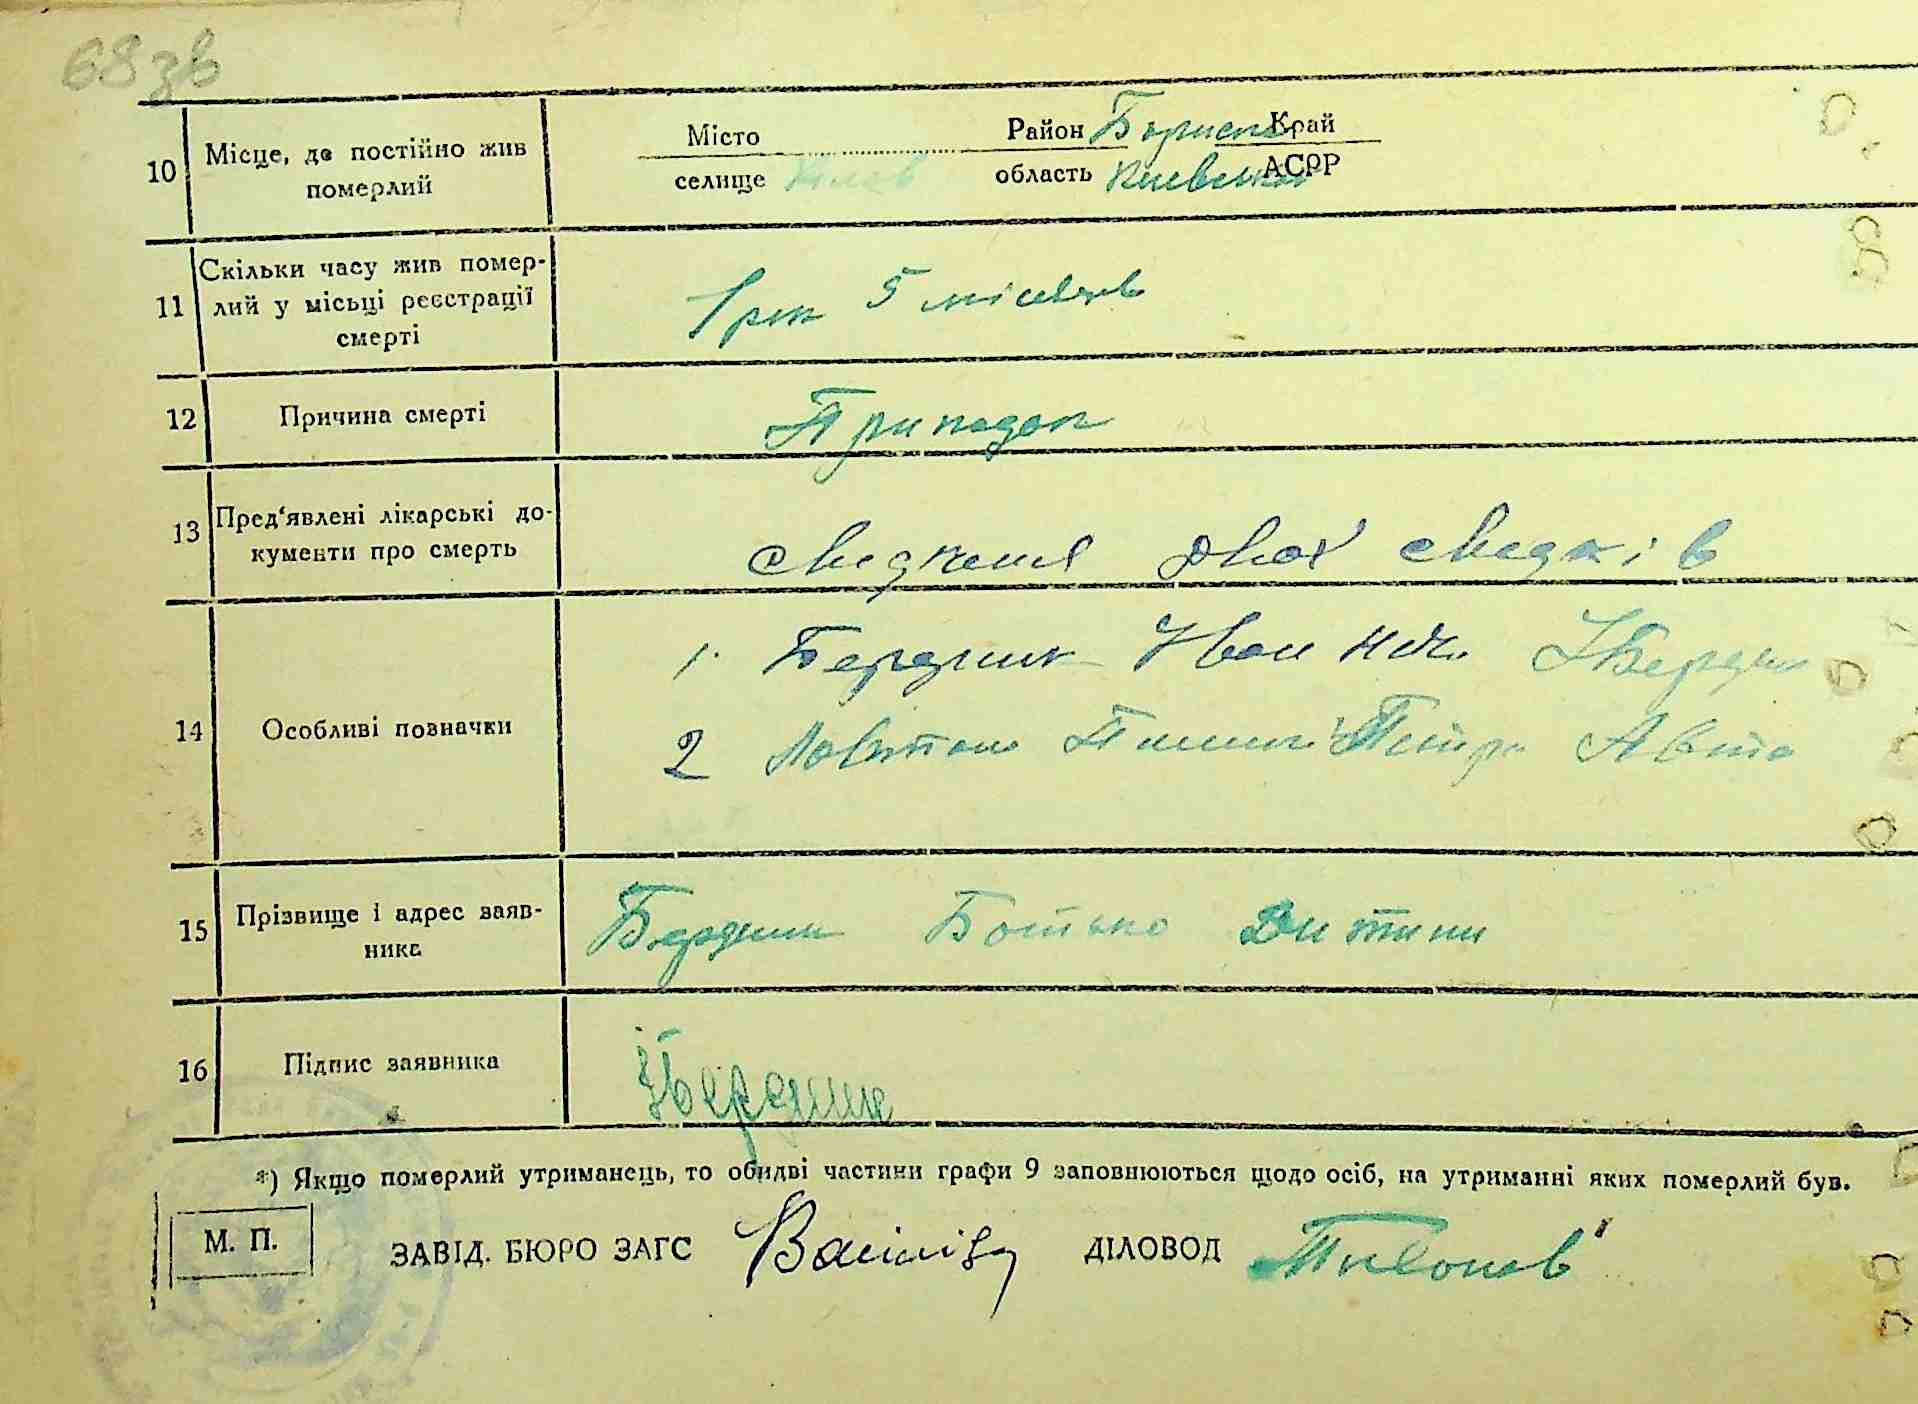 68 зв
10 Місце, де постійно жив померлий
Місто Район Бориспол Край
селище Київ область Киевська АСРР
11 Скільки часу жив помер-
лий у місьці реєстрації
смерті
1 рік 5 місяців
12 Причина смерті
Припадок
13 Пред'явлені лікарські до-
кументи про смерть
сведкения двох сведків
14 Особливі позначки
1. Бердник Иван Ник. Бердн
2 Петро Авто
15 Прізвище і адрес заяв-
ника
Бердник Ботько Дитини
16 Підпис заявника
Бердник
*) Якщо померлий утриманець, то обидві частини графи 9 заповнюються щодо осіб, на утриманні яких померлий був.
М. П.
ЗАВІД. БЮРО ЗАГС ДІЛОВОД Тихонов